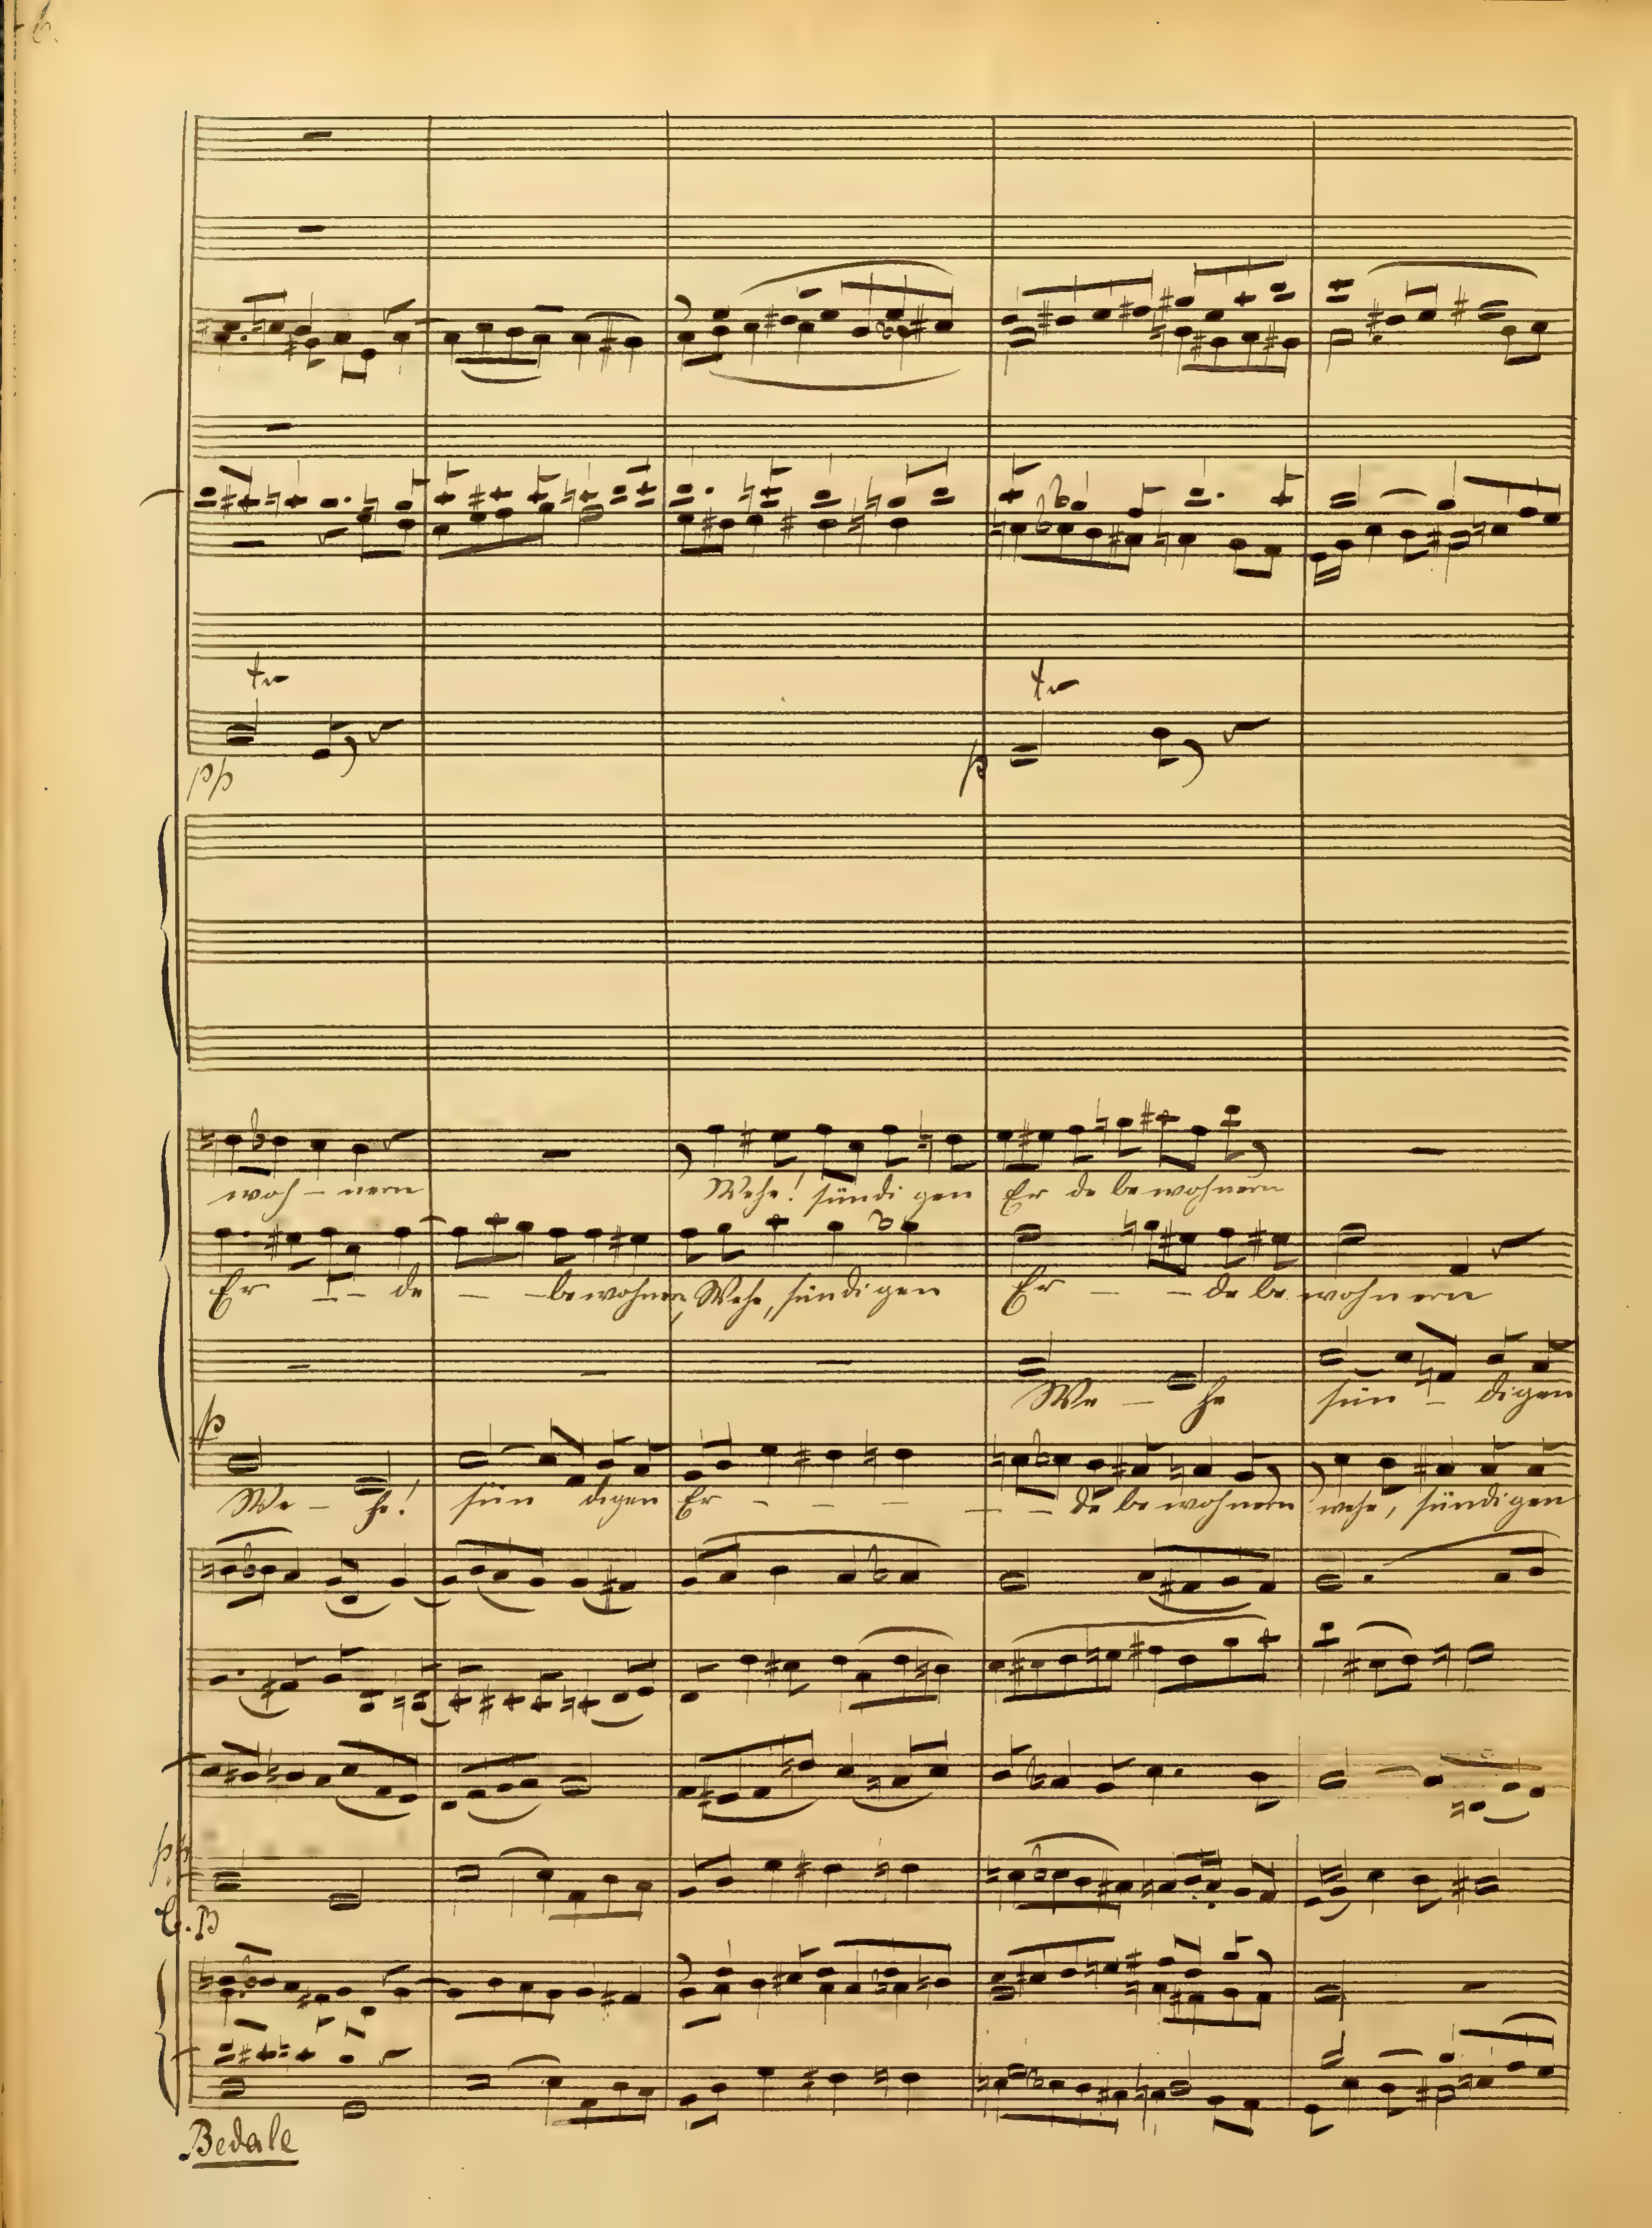 6.
tr tr
pp p
woh - nern Wehe! sündi gen Er de be wohnern
Er - - de - - bewohner, Wehe, sündigen Er - - de be. wohn ern
We - he sün - digen
p
We - he! sün digen Er - - - - - de be wohnern wehe, sündigen
pp
C. B
Bedale